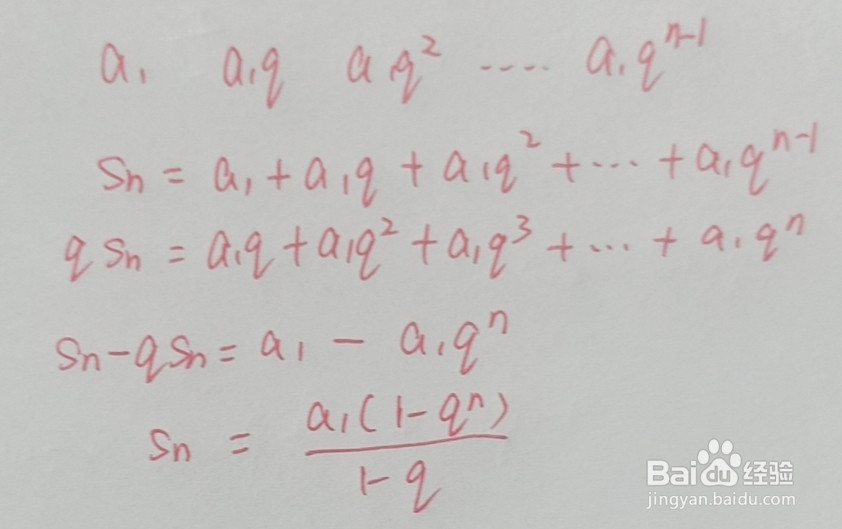 a₁ a₁q a q² ···· a₁qⁿ⁻¹
Sn = a₁ + a₁q + a₁q² + ··· + a₁qⁿ⁻¹
qSn = a₁q + a₁q² + a₁q³ + ··· + a₁qⁿ
Sn - qSn = a₁ - a₁qⁿ
Sn = a₁(1-qⁿ) / 1-q
Baidu经验
jingyan.baidu.com